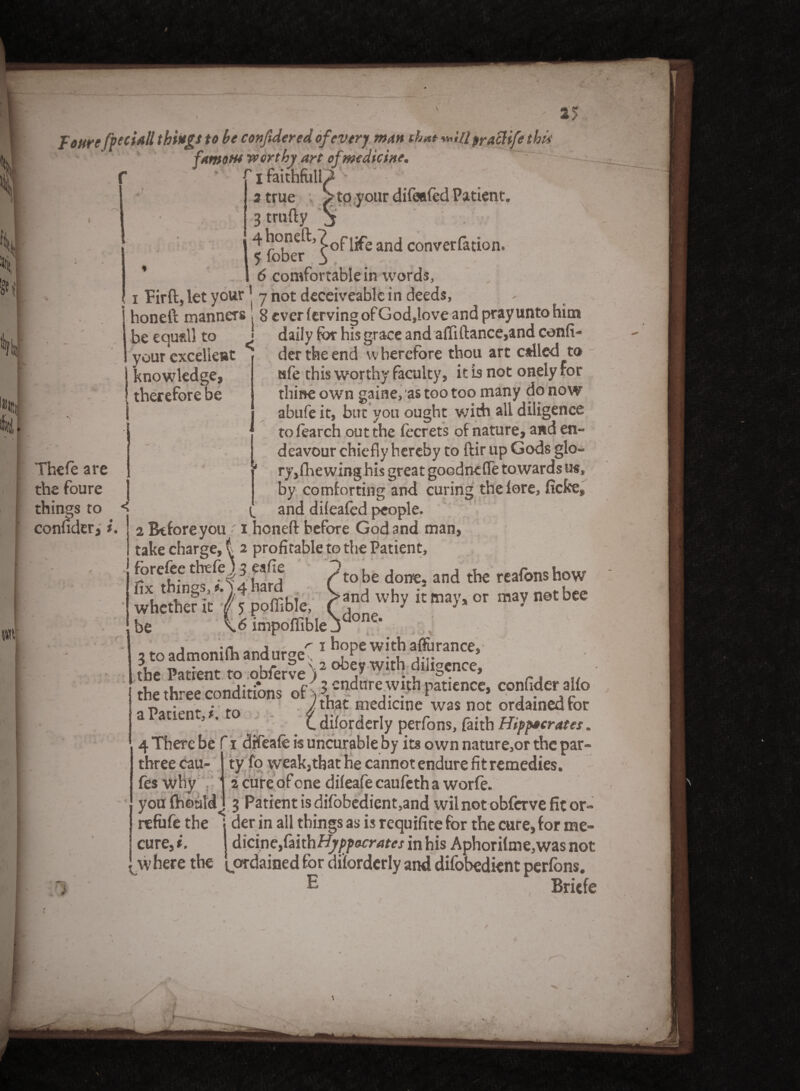 25
Foure speciall things to be considered of every man that will practise this
famous worthy art of medicine.
These are
the foure
things to
consider, i.
1 First, let your
honest manners
be equall to
your excellent
knowledge,
therefore be
1 faithfull
2 true
3 trusty
to your diseased Patient.
4 honest,
5 sober
of life and conversation.
6 comfortable in words,
7 not deceiveable in deeds,
8 ever serving of God, love and pray unto him
daily for his grace and assistance, and consi-
der the end wherefore thou art called to
use this worthy faculty, it is not onely for
thine own gaine, as too too many do now
abuse it, but you ought with all diligence
to search out the secrets of nature, and en-
deavour chiefly hereby to stir up Gods glo-
ry, shewing his great goodnesse towards us,
by comforting and curing the sore, sicke,
and diseased people.
2 Before you
take charge,
foresee these
six things, i.
whether it
be
1 honest before God and man,
2 profitable to the Patient,
3 easie
4 hard
5 possible,
6 impossible
to be done, and the reasons how
and why it may, or may not bee
done.
3 to admonish and urge
the Patient to observe
the three conditions of
a Patient, i. to
1 hope with assurance,
2 obey with diligence,
3 endure with patience, consider also
that medicine was not ordained for
disorderly persons, saith Hippocrates.
4 There be
three cau-
ses why
you should
refuse the
cure, i.
where the
1 disease is uncurable by its own nature, or the par-
ty so weak, that he cannot endure fit remedies.
2 cure of one disease causeth a worse.
3 Patient is disobedient, and wil not observe fit or-
der in all things as is requisite for the cure, for me-
dicine, saith Hyppocrates in his Aphorisme, was not
ordained for disorderly and disobedient persons.
E
Briefe